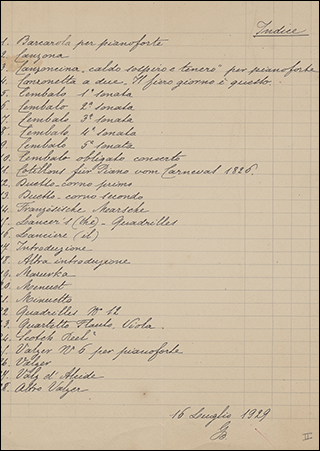 Indice
1. Barcarola per pianoforte
Canzona
3. Canzoncina "caldo sospiro e tenero" per pianoforte
Canzonetta a due. Il fiero giorno è questo.
5. Cembalo 1ª sonata
6. Cembalo 2ª sonata
7. Cembalo 3ª sonata
8. Cembalo 4ª sonata
9. Cembalo 5ª sonata
10. Cembalo obligato concerto
11. Cotillons für Piano vom Carneval 1826.
12. Duetto - corno primo
13. Duetto - corno secondo
14. Französische Marsche
15. Lancer's (the) - Quadrilles
16. Lanciere (il)
17. Introduzione
18. Altra introduzione
19. Mazurka
20. Menuet
21. Minuetto
22. Quadrilles Nº 12
23. Quartetto Flauto, Viola.
24. Scotch Reel"
25. Valzer Nº 6 per pianoforte
26. Valzer
27. Valz d'Alcide
28. Altro Valzer
16 Luglio 1929
II